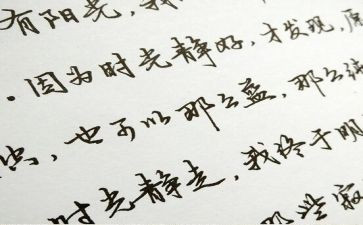 有阳光，我
。因为时光静好，才发现，原
，也可以那么蓝，那么
时光静走，我终于明
那些寂